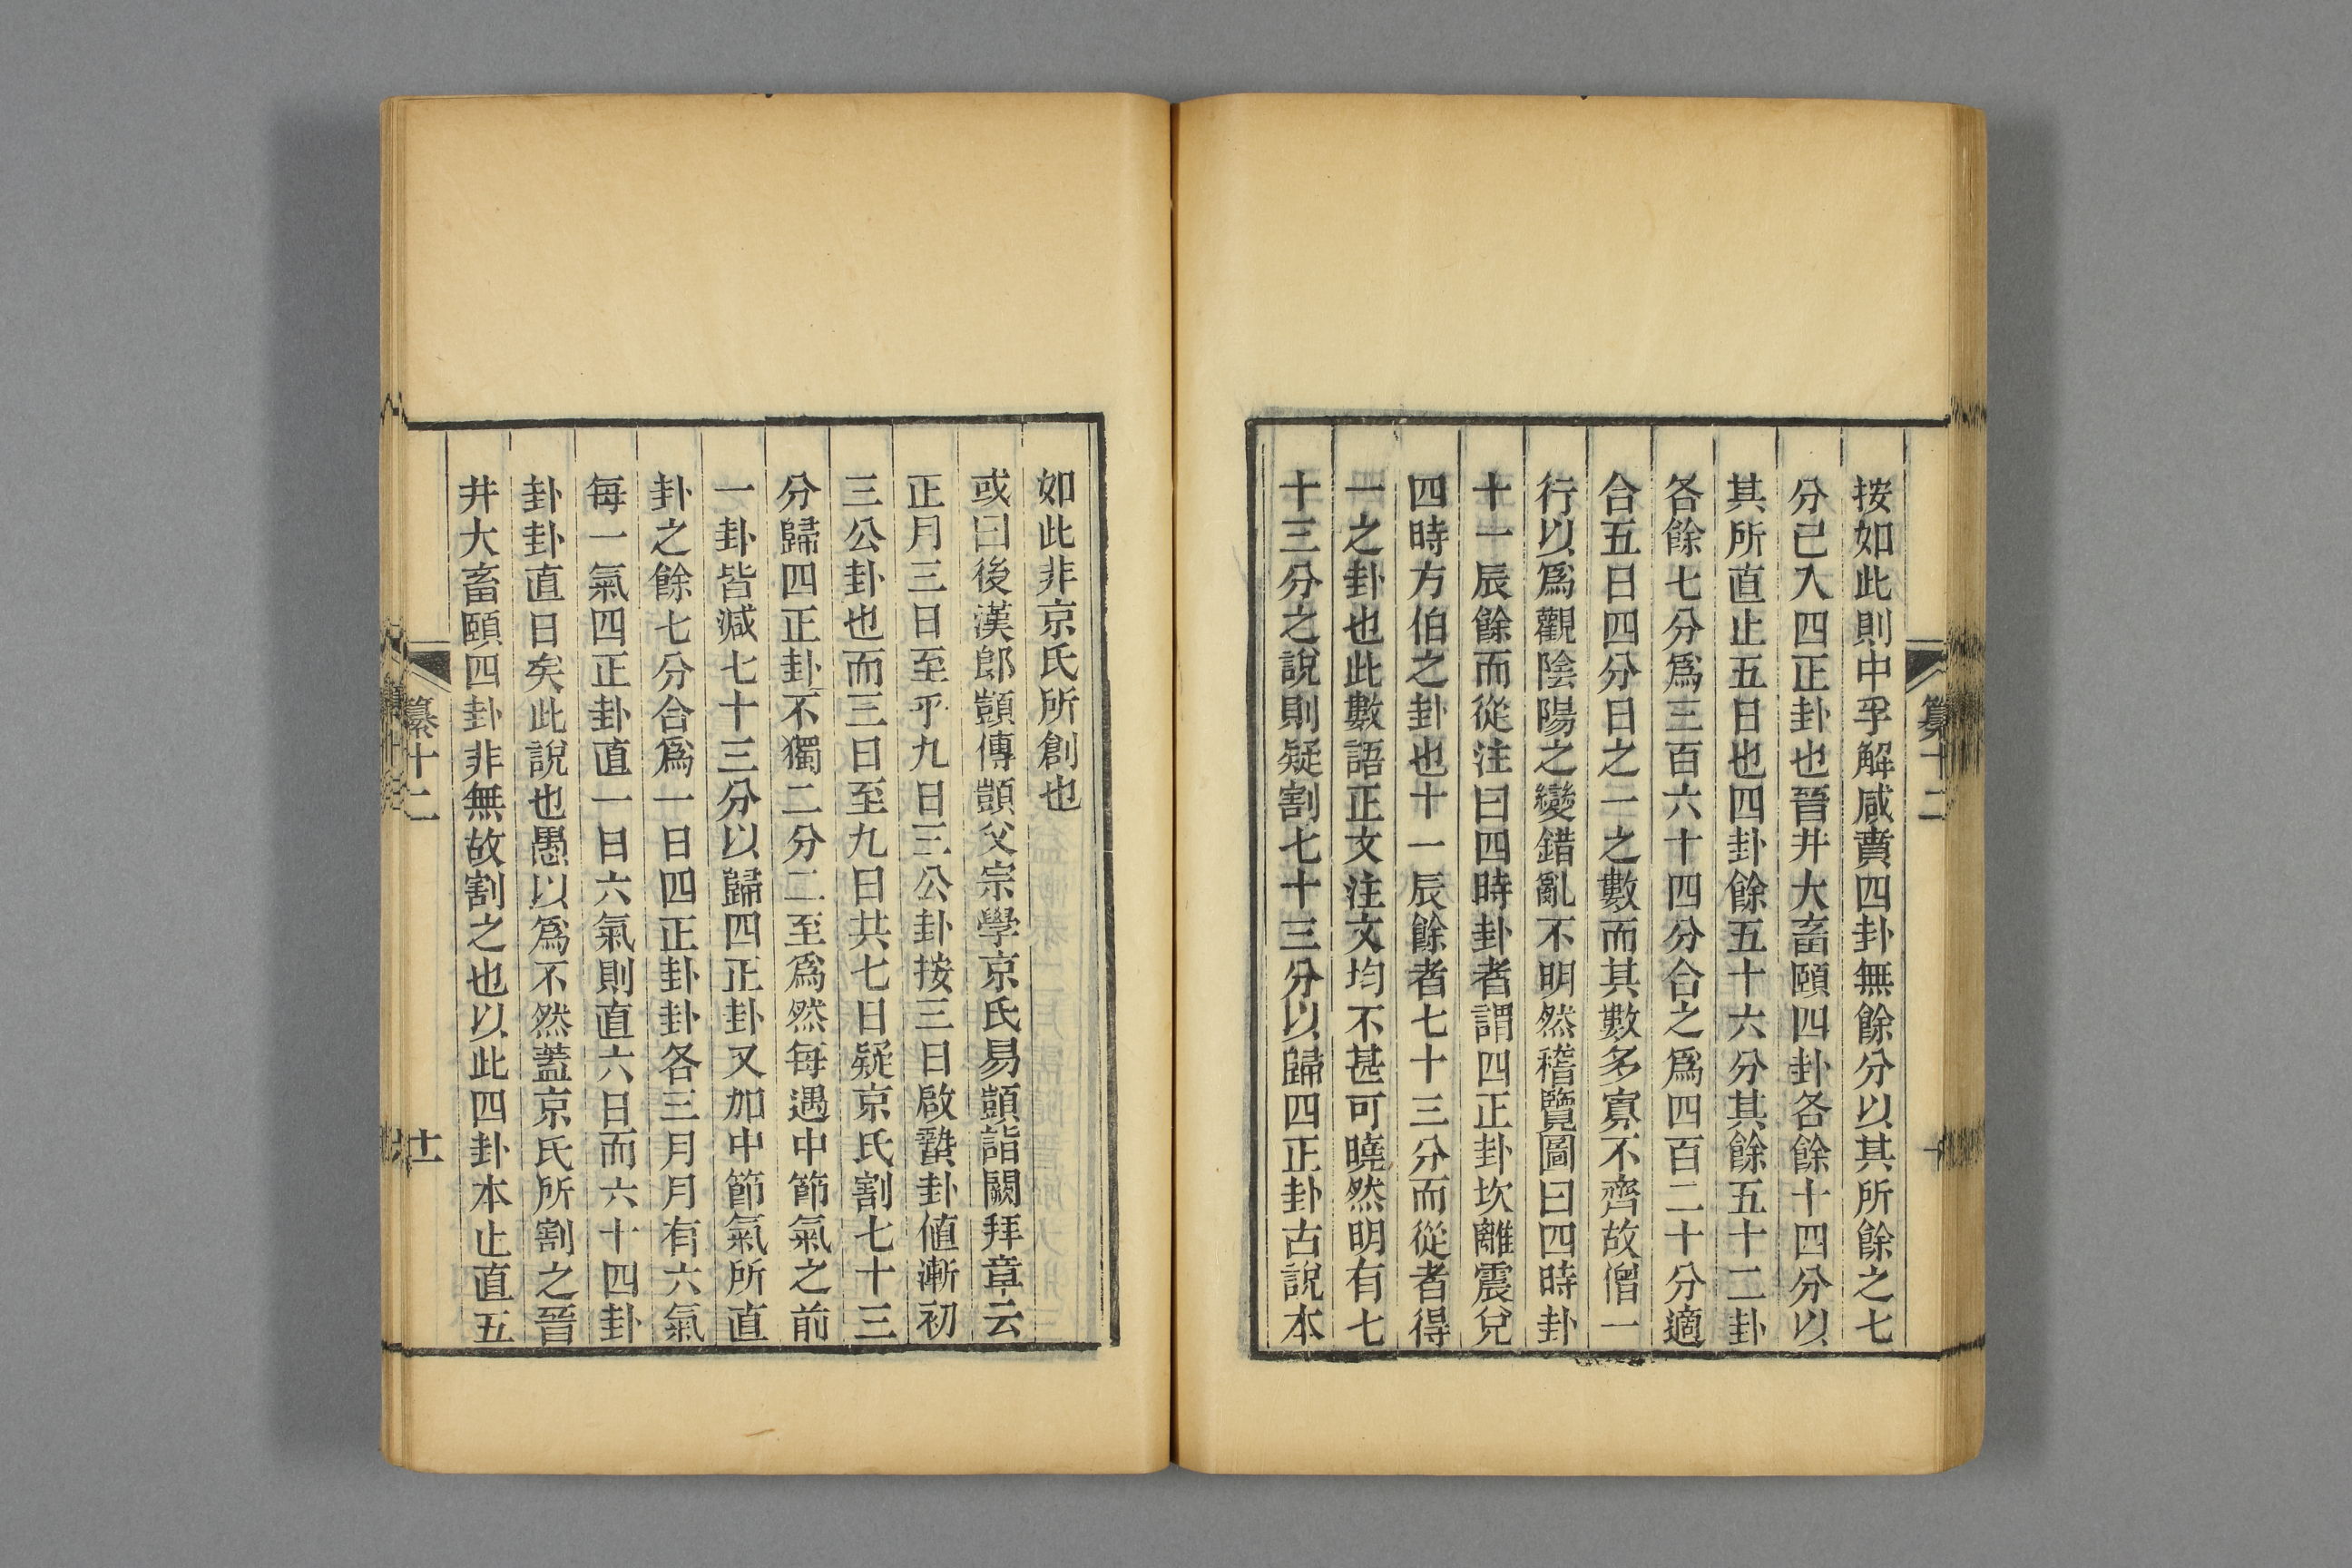 纂十二
十
按如此則中孚解咸賁四卦無餘分以其所餘之七
分已入四正卦也晉井大畜頤四卦各餘十四分以
其所直止五日也四卦餘五十六分其餘五十二卦
各餘七分爲三百六十四分合之爲四百二十分適
合五日四分日之一之數而其數多寡不齊故僧一
行以爲觀陰陽之變錯亂不明然稽覽圖曰四時卦
十一辰餘而從注曰四時卦者謂四正卦坎離震兌
四時方伯之卦也十一辰餘者七十三分而從者得
一之卦也此數語正文注文均不甚可曉然明有七
十三分之說則疑割七十三分以歸四正卦古說本
如此非京氏所創也
或曰後漢郎顗傳顗父宗學京氏易顗詣闕拜章云
正月三日至乎九日三公卦按三日啟蟄卦值漸初
三公卦也而三日至九日共七日疑京氏割七十三
分歸四正卦不獨二分二至爲然每遇中節氣之前
一卦皆減七十三分以歸四正卦又加中節氣所直
卦之餘七分合爲一日四正卦卦各三月月有六氣
每一氣四正卦直一日六氣則直六日而六十四卦
卦卦直日矣此說也愚以爲不然蓋京氏所割之晉
井大畜頤四卦非無故割之也以此四卦本止直五
纂十二
十一